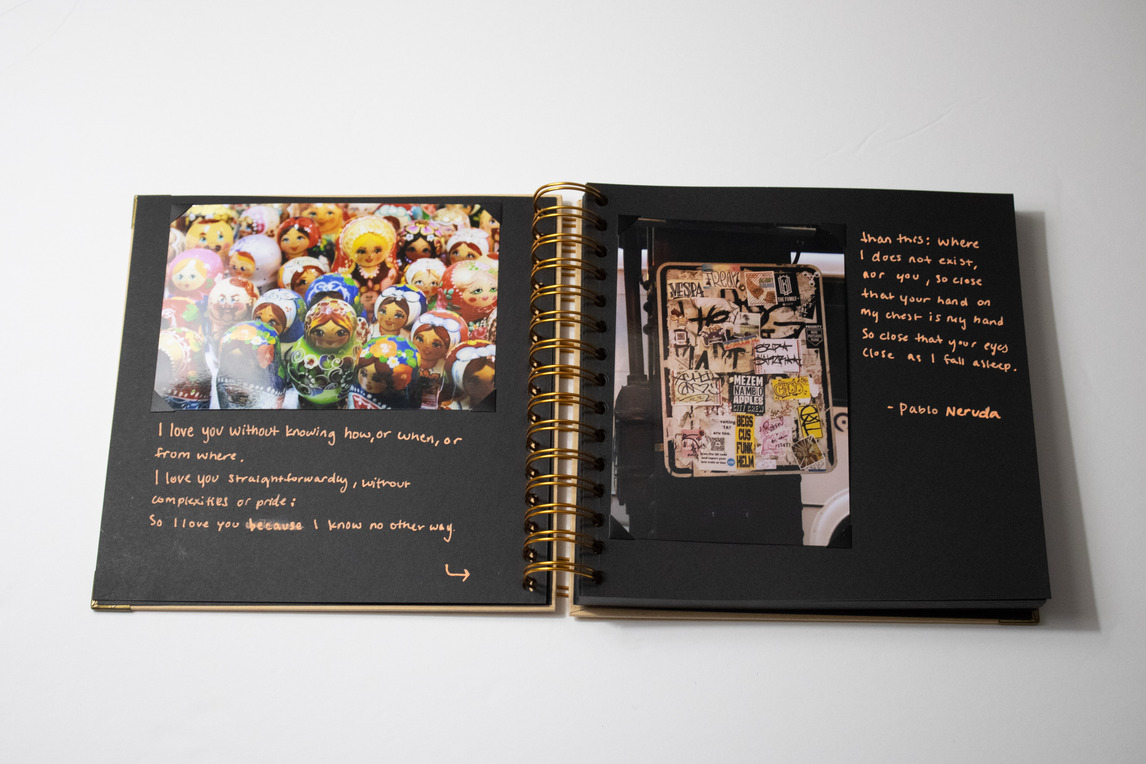 I love you without knowing how, or when, or
from where.
I love you straightforwardly, without
complexities or pride;
So I love you because I know no other way
than this: where
I does not exist,
nor you, so close
that your hand on
my chest is my hand
So close that your eyes
close as I fall asleep.
- Pablo Neruda
VESPA
FREAK
THE FAMILE
PRIORITY
MEZEM
NAMBO
APPLES
CITY CREW
BEGS
CUS
FUNK
HELM